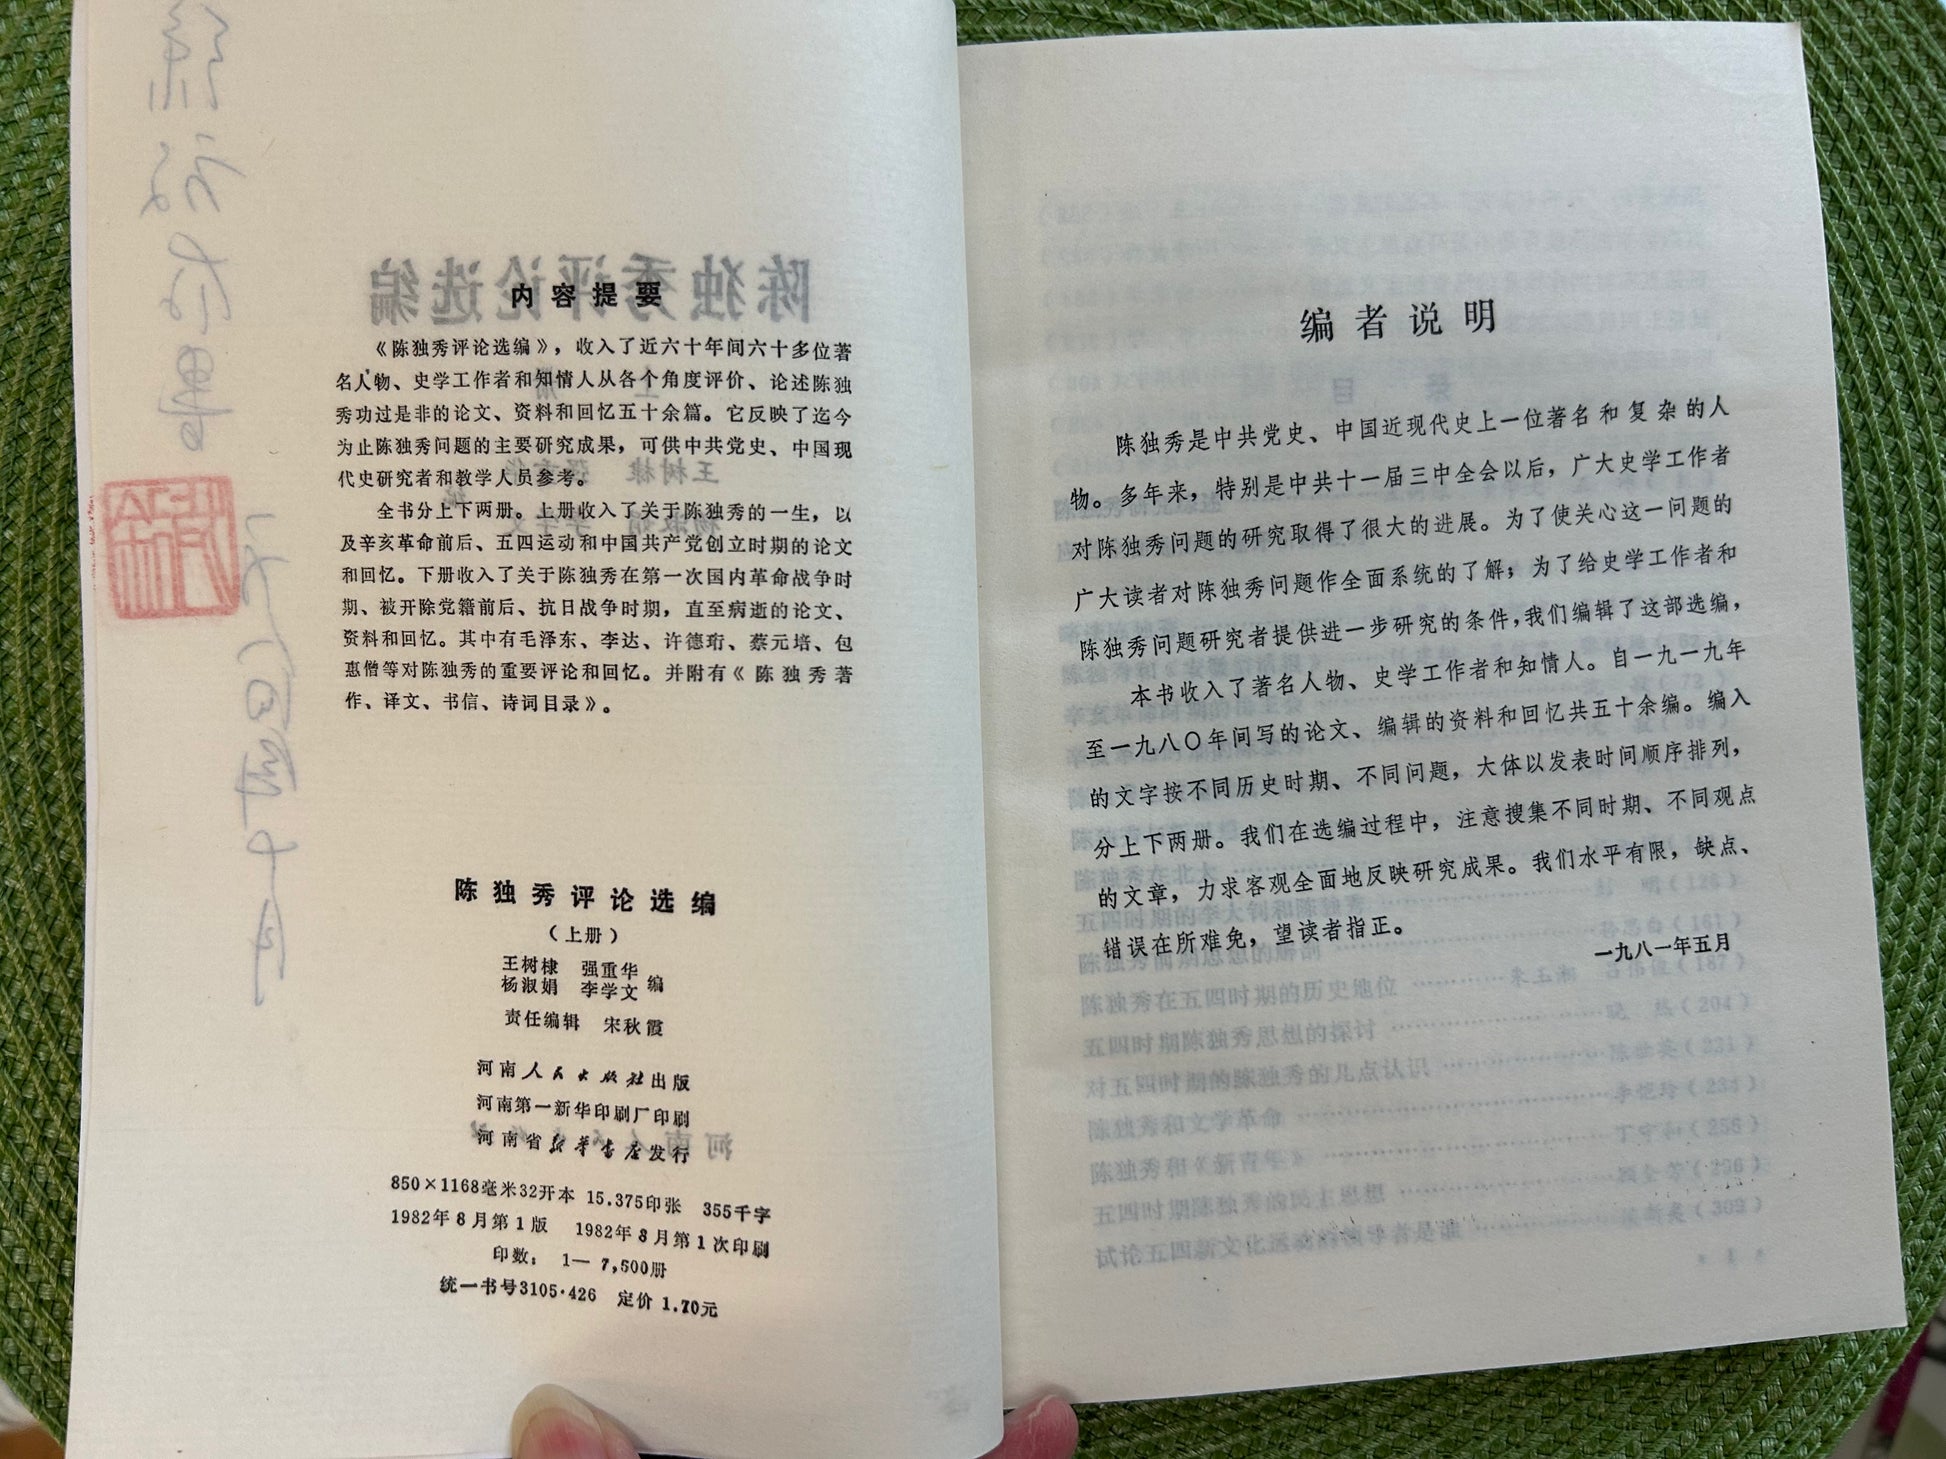 内容提要
《陈独秀评论选编》，收入了近六十年间六十多位著
名人物、史学工作者和知情人从各个角度评价、论述陈独
秀功过是非的论文、资料和回忆五十余篇。它反映了迄今
为止陈独秀问题的主要研究成果，可供中共党史、中国现
代史研究者和教学人员参考。
全书分上下两册。上册收入了关于陈独秀的一生，以
及辛亥革命前后、五四运动和中国共产党创立时期的论文
和回忆。下册收入了关于陈独秀在第一次国内革命战争时
期、被开除党籍前后、抗日战争时期，直至病逝的论文、
资料和回忆。其中有毛泽东、李达、许德珩、蔡元培、包
惠僧等对陈独秀的重要评论和回忆。并附有《陈独秀著
作、译文、书信、诗词目录》。
陈独秀评论选编
（上册）
王树棣 强重华
杨淑娟 李学文 编
责任编辑 宋秋霞
河南人民出版社出版
河南第一新华印刷厂印刷
河南省新华书店发行
850×1168毫米32开本 15.375印张 355千字
1982年8月第1版 1982年8月第1次印刷
印数：1—7,500册
统一书号3105·426 定价1.70元
编者说明
陈独秀是中共党史、中国近现代史上一位著名和复杂的人
物。多年来，特别是中共十一届三中全会以后，广大史学工作者
对陈独秀问题的研究取得了很大的进展。为了使关心这一问题的
广大读者对陈独秀问题作全面系统的了解；为了给史学工作者和
陈独秀问题研究者提供进一步研究的条件，我们编辑了这部选编，
本书收入了著名人物、史学工作者和知情人。自一九一九年
至一九八〇年间写的论文、编辑的资料和回忆共五十余编。编入
的文字按不同历史时期、不同问题，大体以发表时间顺序排列，
分上下两册。我们在选编过程中，注意搜集不同时期、不同观点
的文章，力求客观全面地反映研究成果。我们水平有限，缺点、
错误在所难免，望读者指正。
一九八一年五月